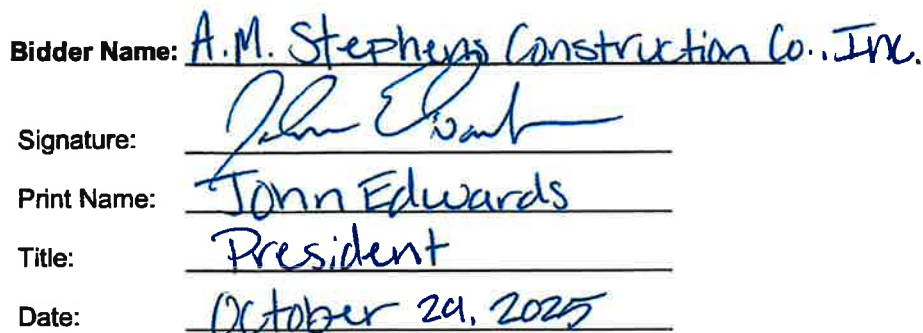 Bidder Name: A.M. Stephens Construction Co., Inc.
Signature: John Edwards
Print Name: John Edwards
Title: President
Date: October 29, 2025